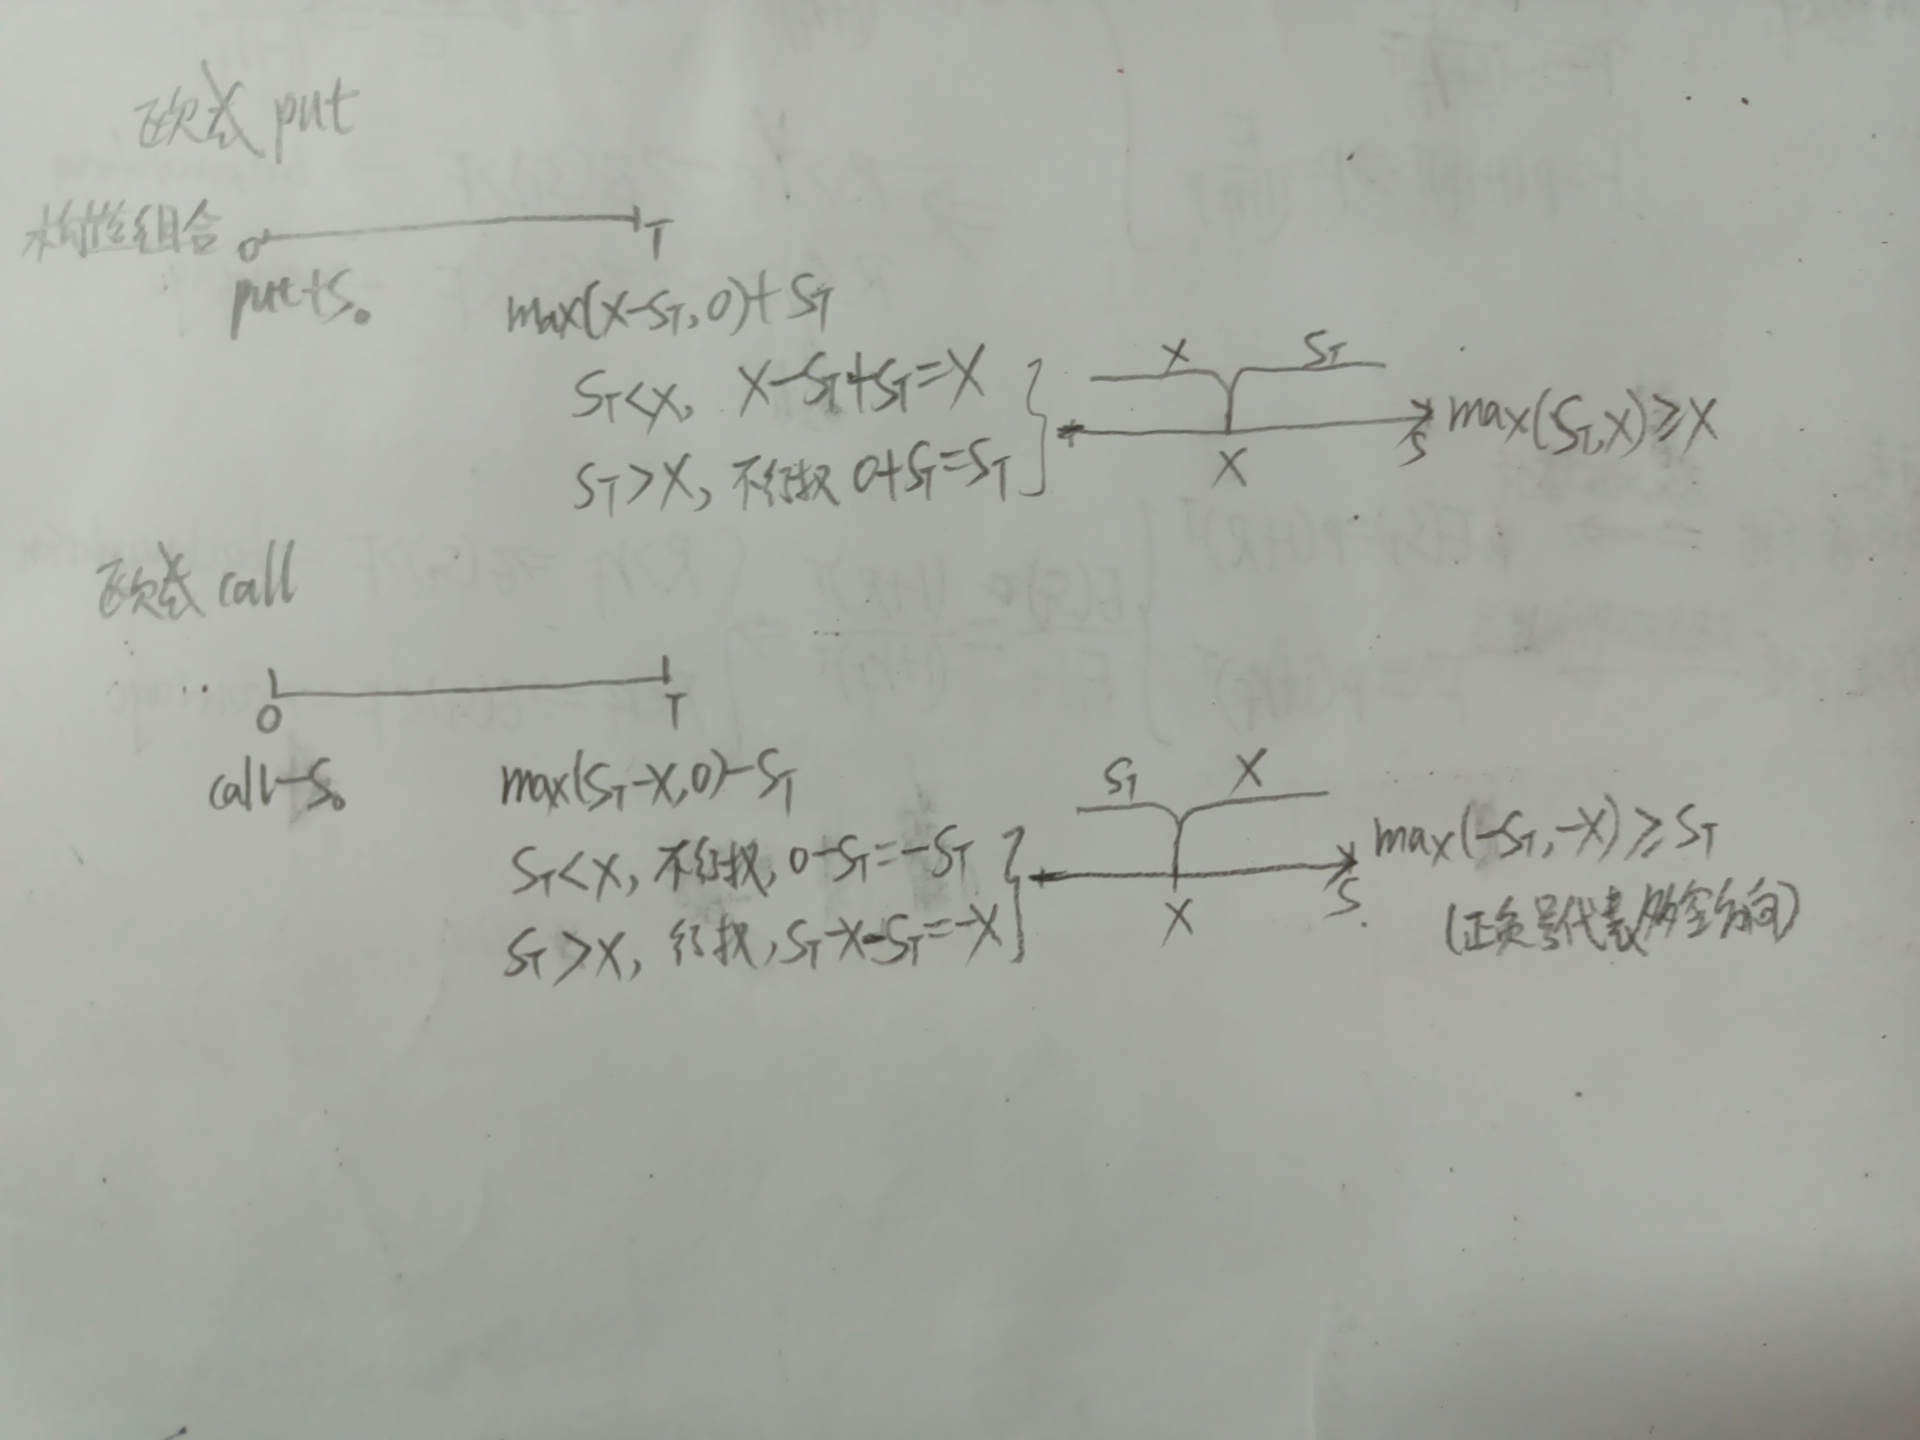 欧式 put
构造组合 0 T
put+S₀
max(X-S_T, 0)+S_T
S_T<X, X-S_T+S_T=X
S_T>X, 不行权 0+S_T=S_T
X S_T
X S
max(S_T, X)≥X
欧式 call
0 T
call-S₀
max(S_T-X, 0)-S_T
S_T<X, 不行权, 0-S_T=-S_T
S_T>X, 行权, S_T-X-S_T=-X
S_T X
X S
max(-S_T, -X)≥S_T
(正负号代表多空方向)